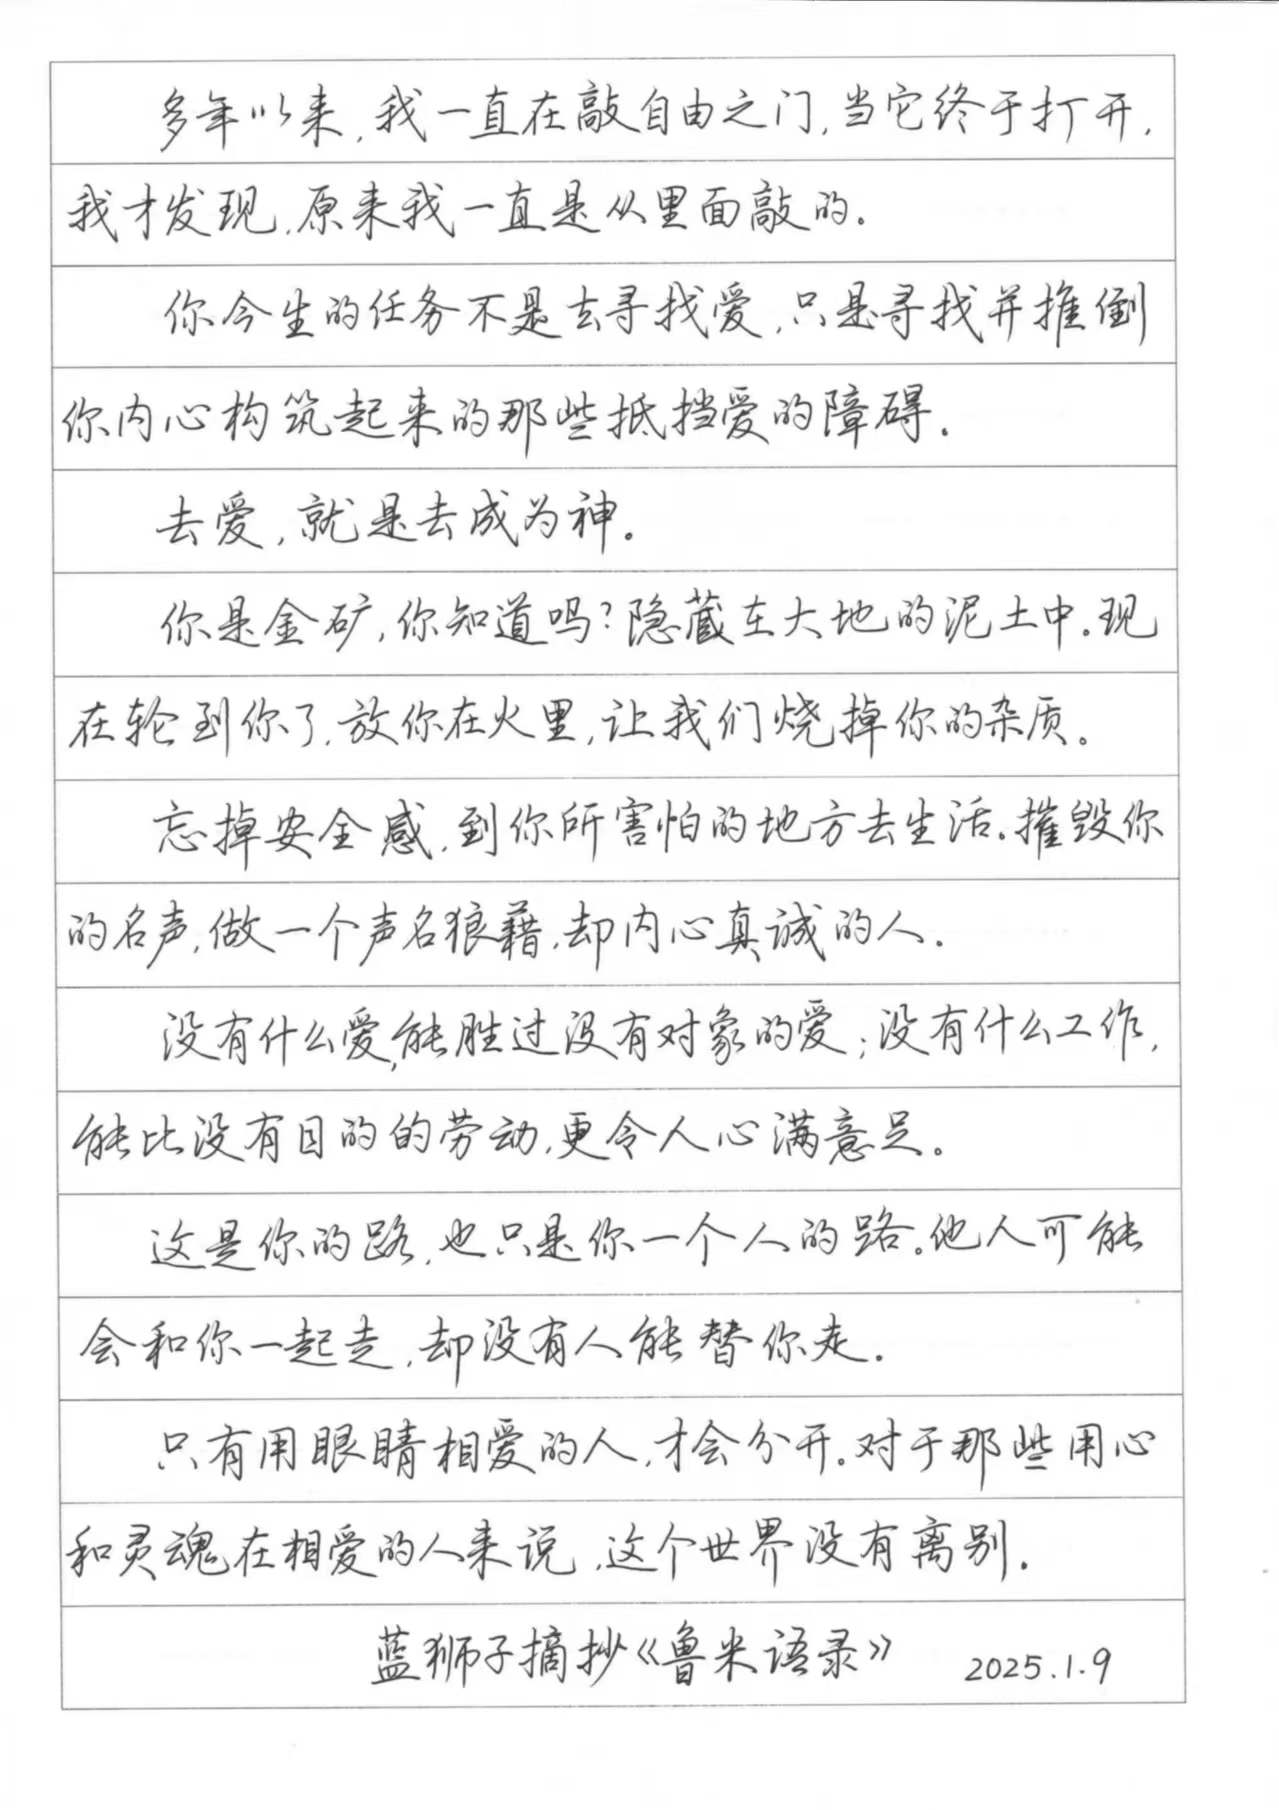 多年以来,我一直在敲自由之门,当它终于打开,
我才发现,原来我一直是从里面敲的。
你今生的任务不是去寻找爱,只是寻找并推倒
你内心构筑起来的那些抵挡爱的障碍。
去爱,就是去成为神。
你是金矿,你知道吗?隐藏在大地的泥土中。现
在轮到你了,放你在火里,让我们烧掉你的杂质。
忘掉安全感,到你所害怕的地方去生活。摧毁你
的名声,做一个声名狼藉,却内心真诚的人。
没有什么爱,能胜过没有对象的爱;没有什么工作,
能比没有目的的劳动,更令人心满意足。
这是你的路,也只是你一个人的路。他人可能
会和你一起走,却没有人能替你走。
只有用眼睛相爱的人,才会分开。对于那些用心
和灵魂在相爱的人来说,这个世界没有离别。
蓝狮子摘抄《鲁米语录》 2025.1.9